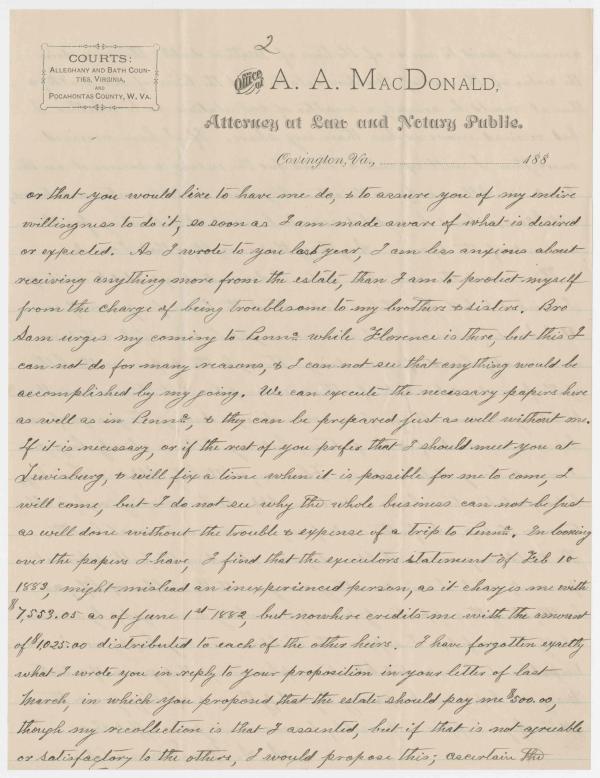 2
COURTS:
ALLEGHANY AND BATH COUN-
TIES, VIRGINIA,
AND
POCAHONTAS COUNTY, W. VA.
Office of A. A. MACDONALD,
Attorney at Law and Notary Public.
Covington, Va., 188
or that you would like to have me do, & to assure you of my entire
willingness to do it, so soon as I am made aware of what is desired
or expected. As I wrote to you last year, I am less anxious about
receiving anything more from the estate, than I am to protect myself
from the charge of being troublesome to my brothers & sisters. Bro
Sam urges my coming to Penna. while Florence is there, but this I
can not do for many reasons, & I can not see that anything would be
accomplished by my going. We can execute the necessary papers here
as well as in Penna., & they can be prepared just as well without me.
If it is necessary, or if the rest of you prefer that I should meet you at
Lewisburg, & will fix a time when it is possible for me to come, I
will come, but I do not see why the whole business can not be just
as well done without the trouble & expense of a trip to Penna. In looking
over the papers I have, I find that the executors statement of Feb 10
1883, might mislead an inexperienced person, as it charges me with
$7,553.05 as of June 1st 1882, but nowhere credits me with the amount
of $1,025.00 distributed to each of the other heirs. I have forgotten exactly
what I wrote you in reply to your proposition in your letter of last
March, in which you proposed that the estate should pay me $500.00,
though my recollection is that I assented, but if that is not agreeable
or satisfactory to the others, I would propose this; ascertain the